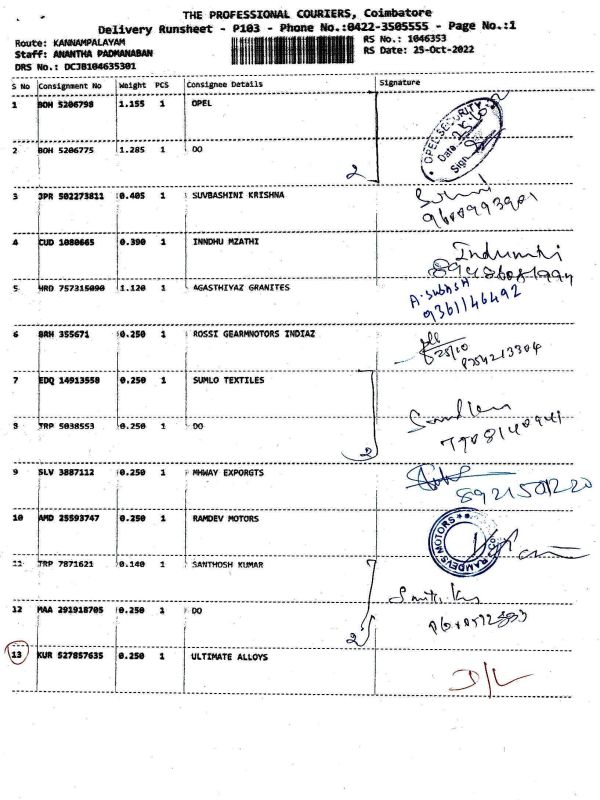 THE PROFESSIONAL COURIERS, Coimbatore
Delivery Runsheet - P103 - Phone No.:0422-3505555 - Page No.:1
Route: KANNAMPALAYAM
RS No.: 1046353
Staff: ANANTHA PADMANABAN
RS Date: 25-Oct-2022
DRS No.: DCJB104635301
S No Consignment No Weight PCS Consignee Details Signature
1 BOH 5206798 1.155 1 OPEL
OPEL SECURITY
Date
Sign
2 BOH 5206775 1.285 1 DO
2
3 JPR 502273811 0.405 1 SUVBASHINI KRISHNA
4 CUD 1080665 0.390 1 INNDHU MZATHI
Indumathi
5 HRD 757315090 1.120 1 AGASTHIYAZ GRANITES
A. Subash
9361146492
6 BRH 355671 0.250 1 ROSSI GEARMNOTORS INDIAZ
25/10
7 EDQ 14913558 0.250 1 SUMLO TEXTILES
8 TRP 5038553 0.250 1 DO
2
7908140941
9 SLV 3887112 0.250 1 MHWAY EXPORGTS
10 AMD 25593747 0.250 1 RAMDEV MOTORS
RAMDEVS MOTORS
11 TRP 7871621 0.140 1 SANTHOSH KUMAR
12 MAA 291918705 0.250 1 DO
2
13 KUR 527857635 0.250 1 ULTIMATE ALLOYS
D/L